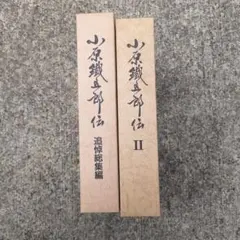 小原鐵五郎伝
追悼総集編
小原鐵五郎伝
II